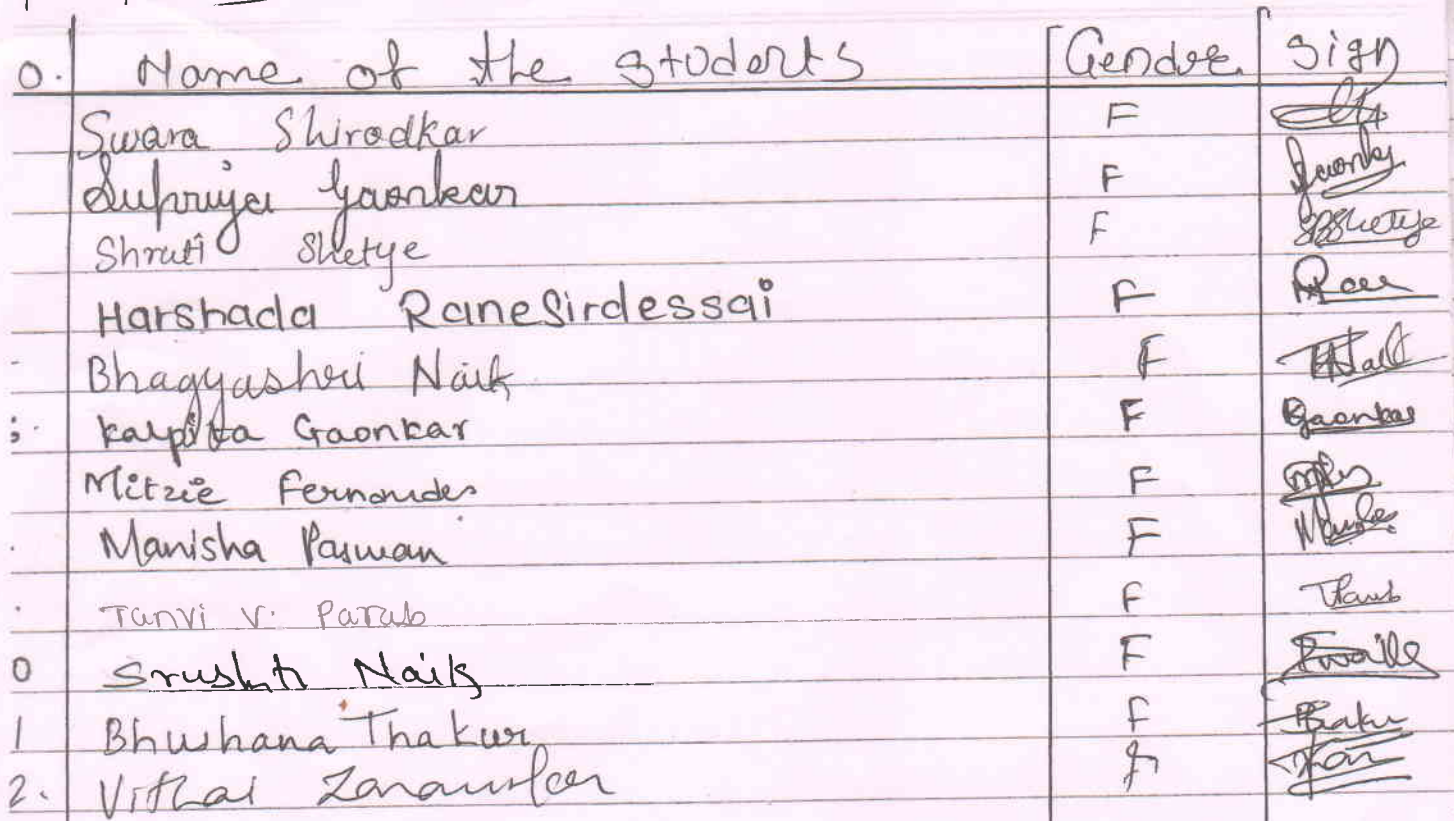 o. Name of the students Gender Sign
Swara Shirodkar F
Supriya Gaonkar F Gaonkar
Shruti Shetye F SBShetye
Harshada RaneSirdessai F Rane
Bhagyashri Naik F
Kalpita Gaonkar F Gaonkar
Mitzie Fernandes F
Manisha Paswan F
Tanvi V. Parab F TParab
0 Srushti Naik F
1 Bhushana Thakur F
2. Vithai